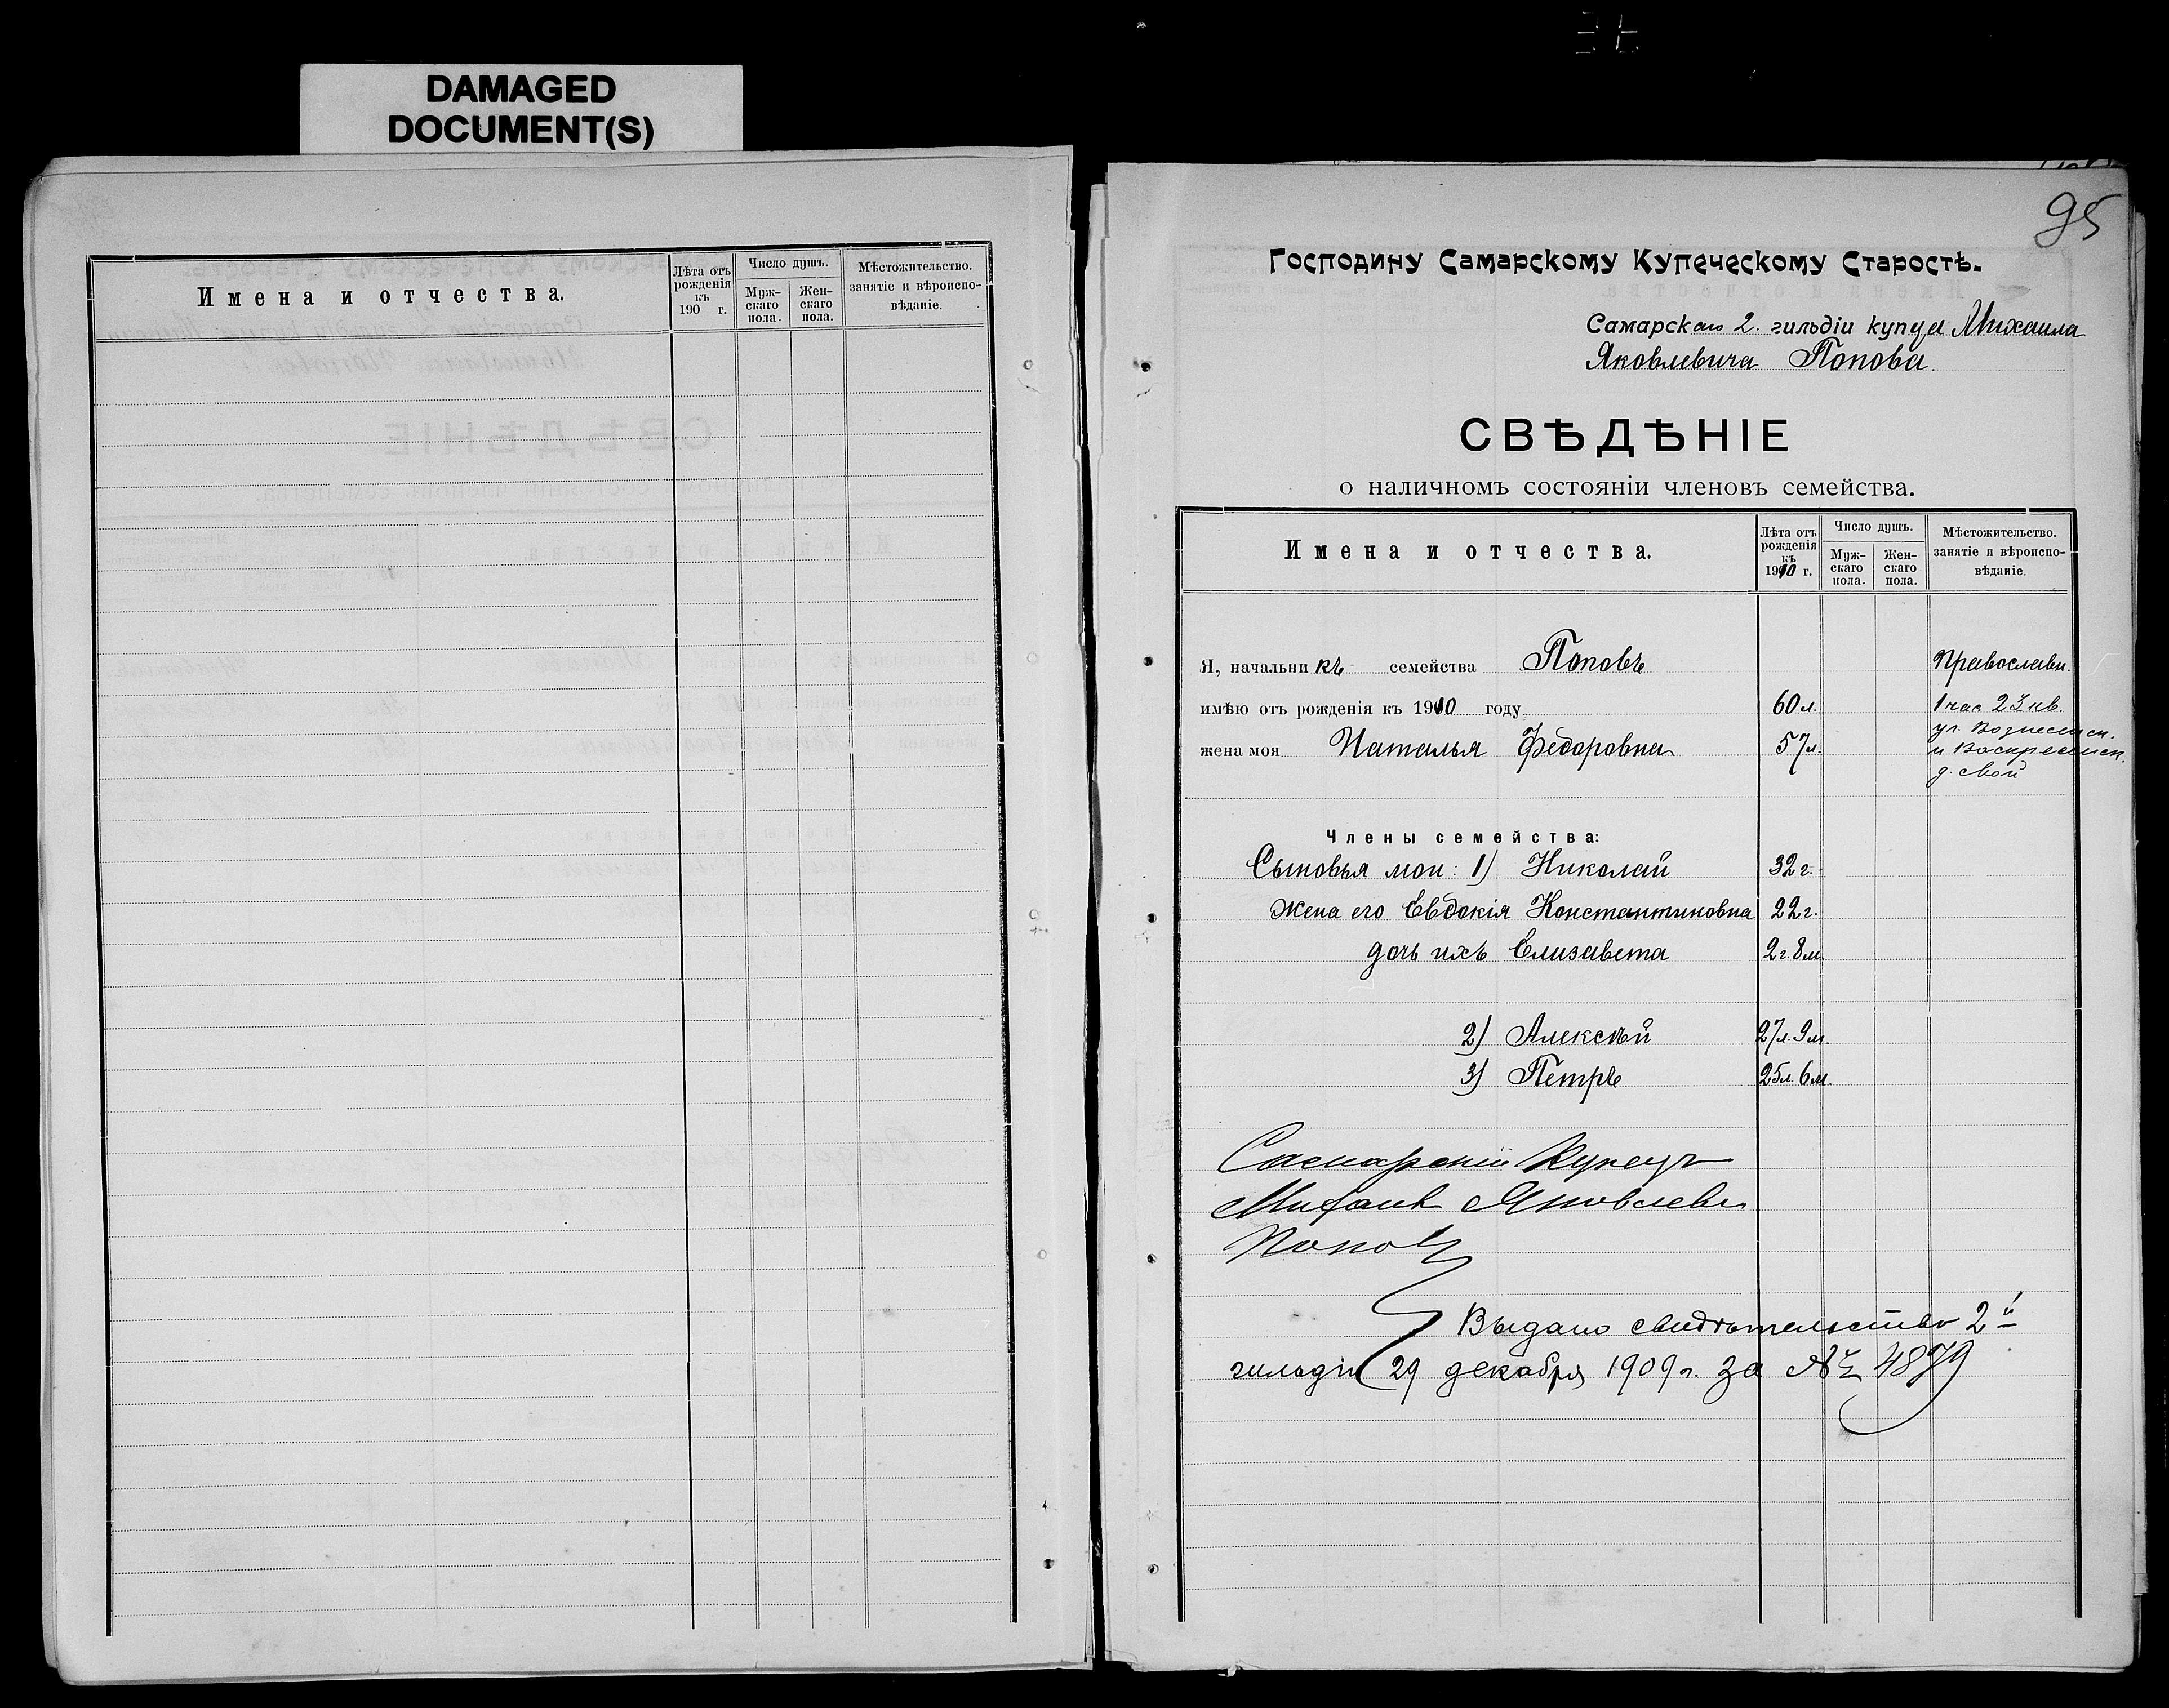 DAMAGED
DOCUMENT(S)
Имена и отчества.
Лѣта отъ рожденія къ 190 г.
Число душъ.
Мужскаго пола.
Женскаго пола.
Мѣстожительство. занятіе и вѣроисповѣданіе.
95
Господину Самарскому Купеческому Старостѣ.
Самарскаго 2. гильдіи купца Михаила
Яковлевича Попова.
СВѢДѢНІЕ
о наличномъ состояніи членовъ семейства.
Имена и отчества.
Лѣта отъ рожденія къ 1910 г.
Число душъ.
Мужскаго пола.
Женскаго пола.
Мѣстожительство. занятіе и вѣроисповѣданіе.
Я, начальникъ семейства Поповъ Православн.
имѣю отъ рожденія къ 1910 году 60 л. 1 час 23 кв.
жена моя Наталья Федоровна 57 л. ул. Вознесенск.
и Воскресенск.
д. свой
Члены семейства:
Сыновья мои: 1) Николай 32 г.
жена его Евдокія Константиновна 22 г.
дочь ихъ Елизавета 2 г. 8 м
2) Алексѣй 27 л. 9 м.
3) Петръ 25 л. 6 м.
Самарскій Купецъ
Михаил Яковлевъ
Попов
Выдано свидѣтельство 2й
гильдіи 29 декабря 1909 г. за № 4879